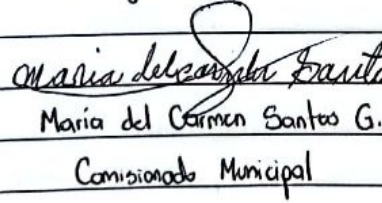 Maria del Carmen Santo
María del Carmen Santos G.
Comisionado Municipal